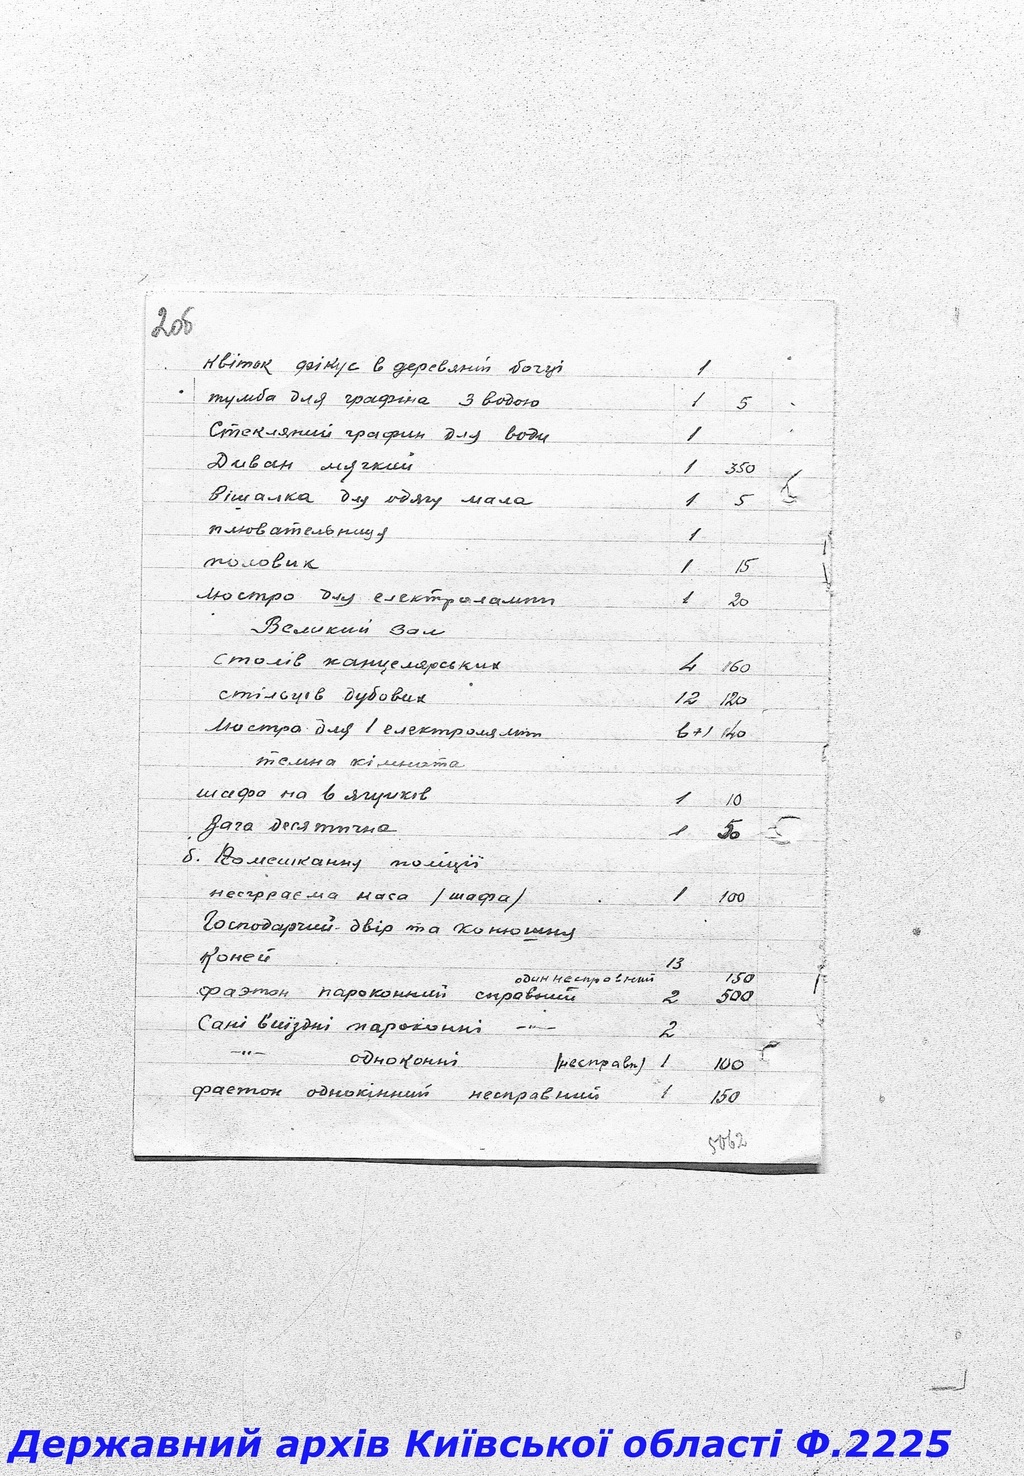 206
квіток фікус в деревяній бочці 1
тумба для графіна з водою 1 5
Стекляний графин для води 1
Диван мягкий 1 350
вішалка для одягу мала 1 5
плювательниця 1
половик 1 15
люстро для електролампи 1 20
Великий зал
столів канцелярських 4 160
стільців дубових 12 120
Люстра для 1 електролямп 6+1 140
темна кімната
шафа на 6 ящиків 1 10
Вага десятична 1 50
б. Помешкання поліції
несгораєма каса /шафа/ 1 100
Господарчий двір та конюшня
Коней 13
один несправний 150
фаэтон пароконний справний 2 500
Сані виїздні пароконні -"- 2
-"- одноконні /несправн/ 1 100
фаетон однокінний несправний 1 150
5062
Державний архів Київської області Ф.2225